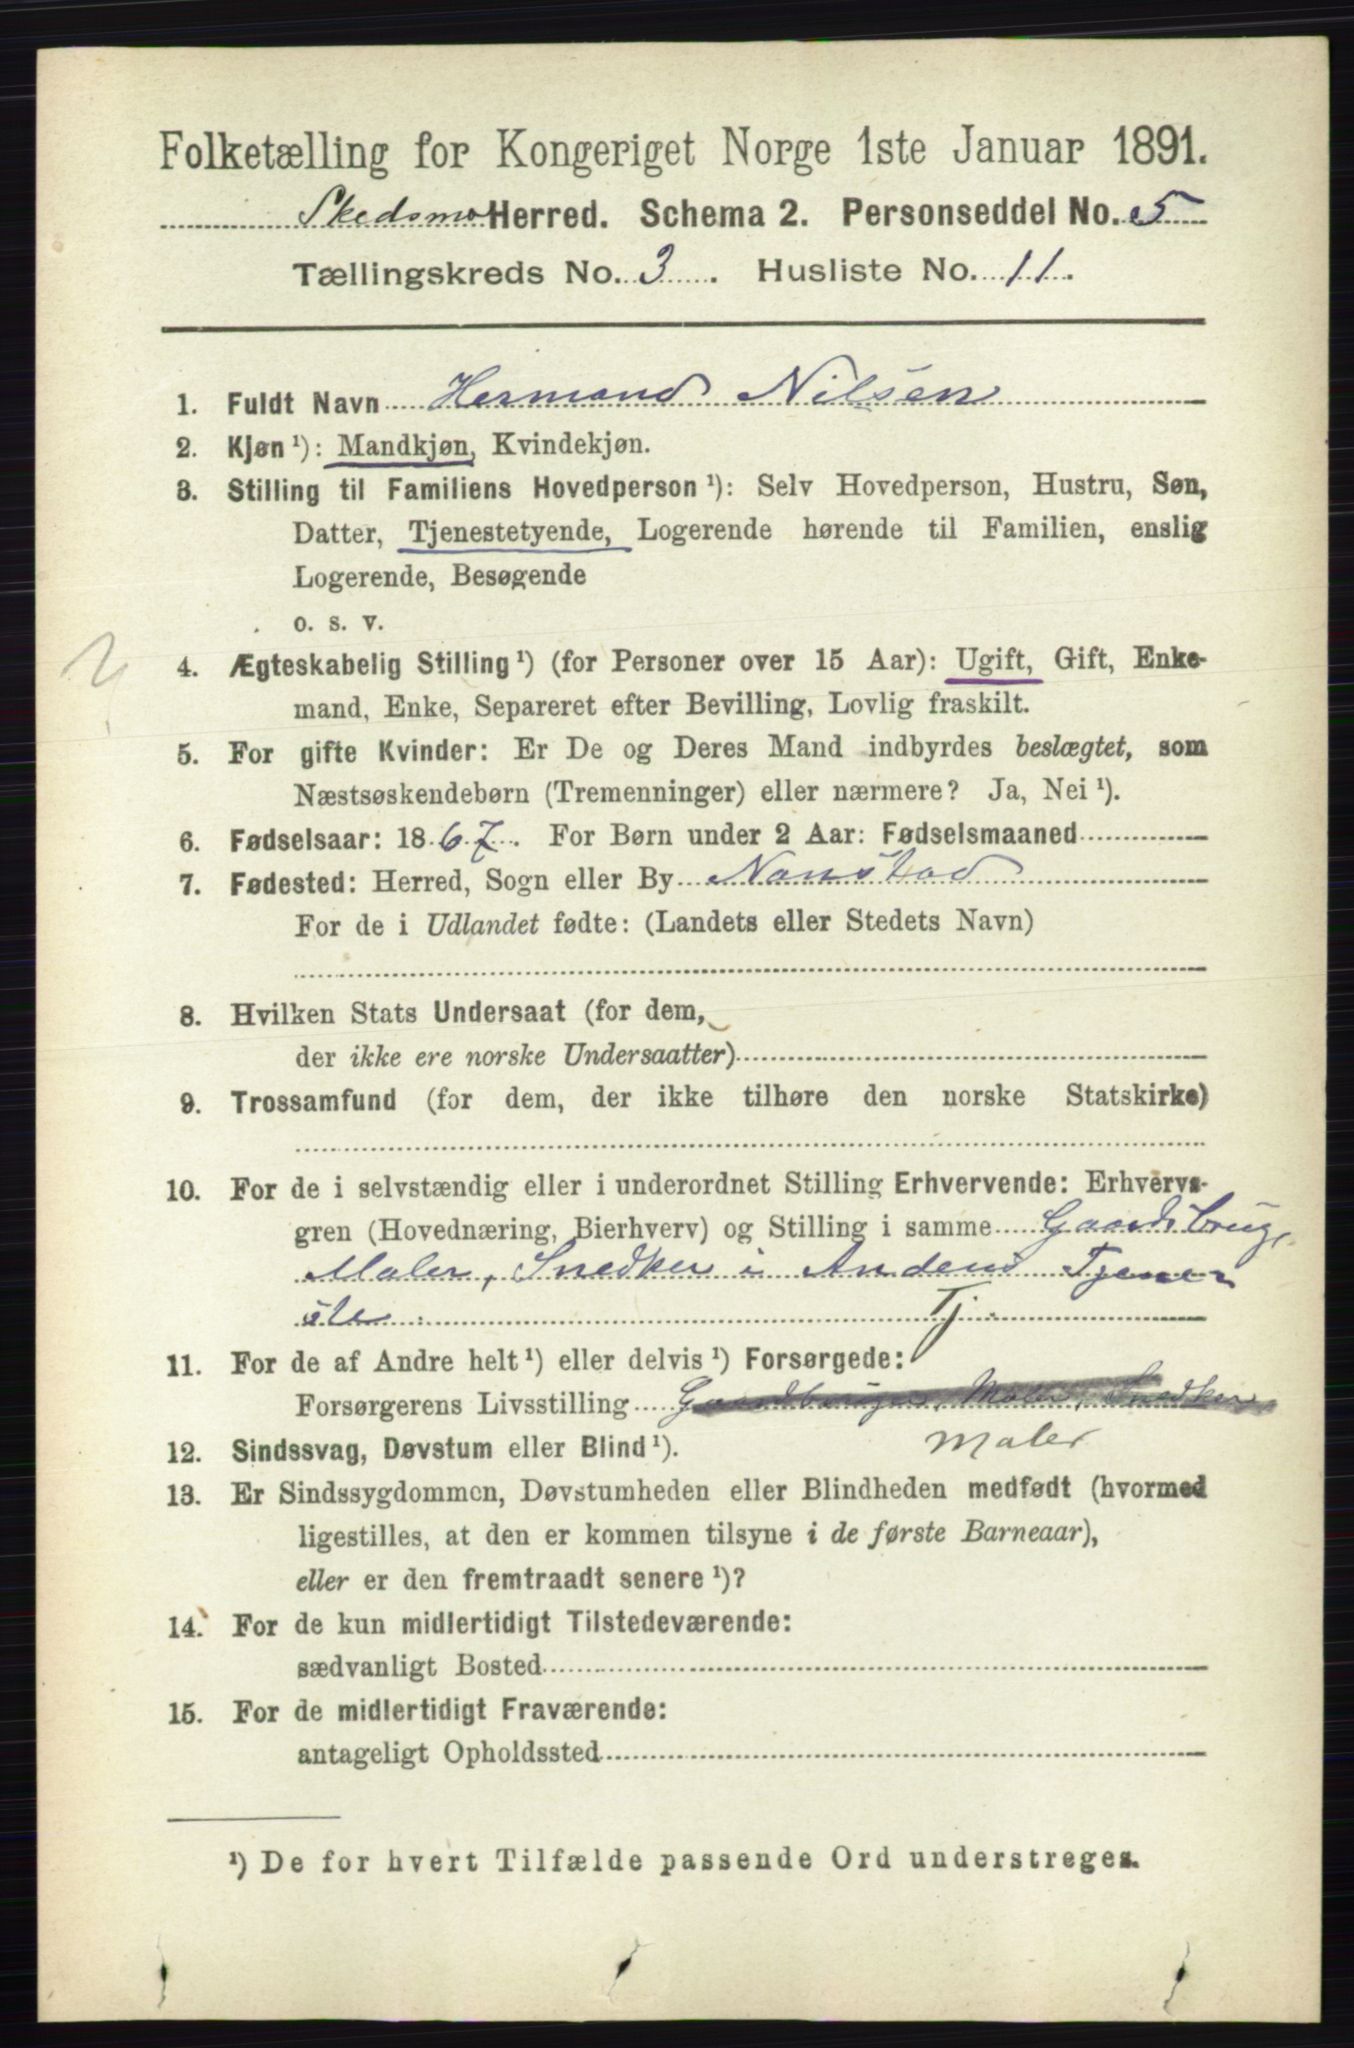 Folketælling for Kongeriget Norge 1ste Januar 1891.
Skedsmo Herred. Schema 2. Personseddel No. 5
Tællingskreds No. 3. Husliste No. 11.
1. Fuldt Navn Hermand Nilsen
2. Kjøn ¹): Mandkjøn, Kvindekjøn.
3. Stilling til Familiens Hovedperson ¹): Selv Hovedperson, Hustru, Søn,
Datter, Tjenestetyende, Logerende hørende til Familien, enslig
Logerende, Besøgende
o. s. v.
2
4. Ægteskabelig Stilling ¹) (for Personer over 15 Aar): Ugift, Gift, Enke-
mand, Enke, Separeret efter Bevilling, Lovlig fraskilt.
5. For gifte Kvinder: Er De og Deres Mand indbyrdes beslægtet, som
Næstsøskendebørn (Tremenninger) eller nærmere? Ja, Nei ¹).
6. Fødselsaar: 1867. For Børn under 2 Aar: Fødselsmaaned
7. Fødested: Herred, Sogn eller By Nanstad
For de i Udlandet fødte: (Landets eller Stedets Navn)
8. Hvilken Stats Undersaat (for dem,
der ikke ere norske Undersaatter)
9. Trossamfund (for dem, der ikke tilhøre den norske Statskirke)
10. For de i selvstændig eller i underordnet Stilling Erhvervende: Erhvervs-
gren (Hovednæring, Bierhverv) og Stilling i samme Gaardsbrug,
Maler, Snedker i Andens Tjene
ste. Tj.
11. For de af Andre helt ¹) eller delvis ¹) Forsørgede:
Forsørgerens Livsstilling Gaardbruger, Maler, Snedker
Maler
12. Sindssvag, Døvstum eller Blind ¹).
13. Er Sindssygdommen, Døvstumheden eller Blindheden medfødt (hvormed
ligestilles, at den er kommen tilsyne i de første Barneaar),
eller er den fremtraadt senere ¹)?
14. For de kun midlertidigt Tilstedeværende:
sædvanligt Bosted
15. For de midlertidigt Fraværende:
antageligt Opholdssted
¹) De for hvert Tilfælde passende Ord understreges.